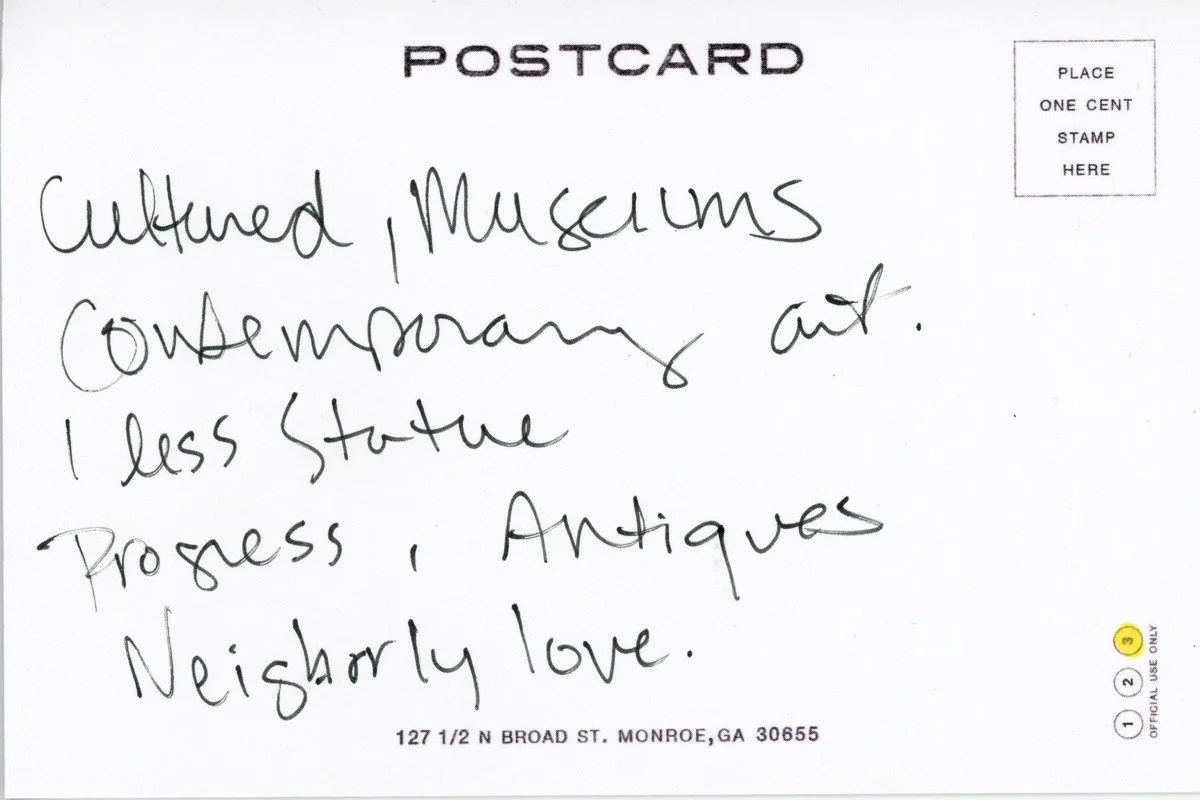 POSTCARD
PLACE
ONE CENT
STAMP
HERE
Cultured, Museums
Contemporary art.
1 less Statue
Progress, Antiques
Neighorly love.
127 1/2 N BROAD ST. MONROE,GA 30655
1 2 3
OFFICIAL USE ONLY